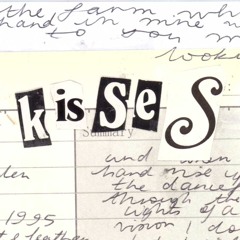 the farm wh
hand in mine w
to you m
looke
kisSeS
Summary
and when
hand rise y
the dance
through the
ten
lights of a
1995
vision I do